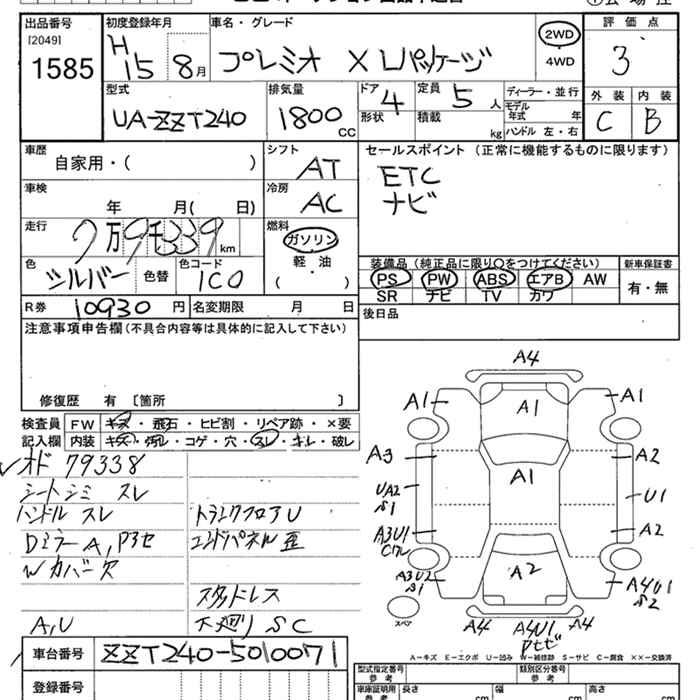 出品番号
[2049]
1585
初度登録年月
H
15 8月
車名・グレード
プレミオ X Lパッケージ
2WD
4WD
評価点
3
型式
UA-ZZT240
排気量
1800
CC
ドア
4
形状
定員 5 人
積載 kg
ディーラー・並行
モデル
年式 年
ハンドル 左・右
外装 内装
C B
車歴
自家用・( )
シフト
AT
車検
年 月( 日)
冷房
AC
走行
7万9千339km
燃料
ガソリン
軽・油
( )
色
シルバー
色替
色コード
1C0
R券 10930 円
名変期限 月 日
セールスポイント (正常に機能するものに限ります)
ETC
ナビ
装備品 (純正品に限り○をつけてください)
新車保証書
PS PW ABS エアB AW
SR ナビ TV カワ
有・無
後日品
注意事項申告欄(不具合内容等は具体的に記入して下さい)
修復歴 有 〔箇所 〕
検査員
記入欄
FW キズ・飛石・ヒビ割・リペア跡・×要
内装 キズ・汚レ・コゲ・穴・スレ・キレ・破レ
オド 79338
シートシミ スレ
ハンドル スレ
Dミラー A, P3セ
Wカバー欠
A, U
トランクフロアU
エンドパネル歪
スタッドレス
下廻りSC
A4
A1
A1
A1
A3
A2
A1
UA2
S1
U1
A3U1
Cワレ
A2
A3U2
S1
A2
A4U1
S2
スペア
A4
A4U1
A4
A-キズ E-エクボ U-凹み W-補修跡 S-サビ C-腐食 ××-交換済
車台番号
ZZT240-5010071
登録番号
型式指定番号
参考
類別区分番号
参考
車庫証明用
参考
長さ
cm
幅
cm
高さ
cm